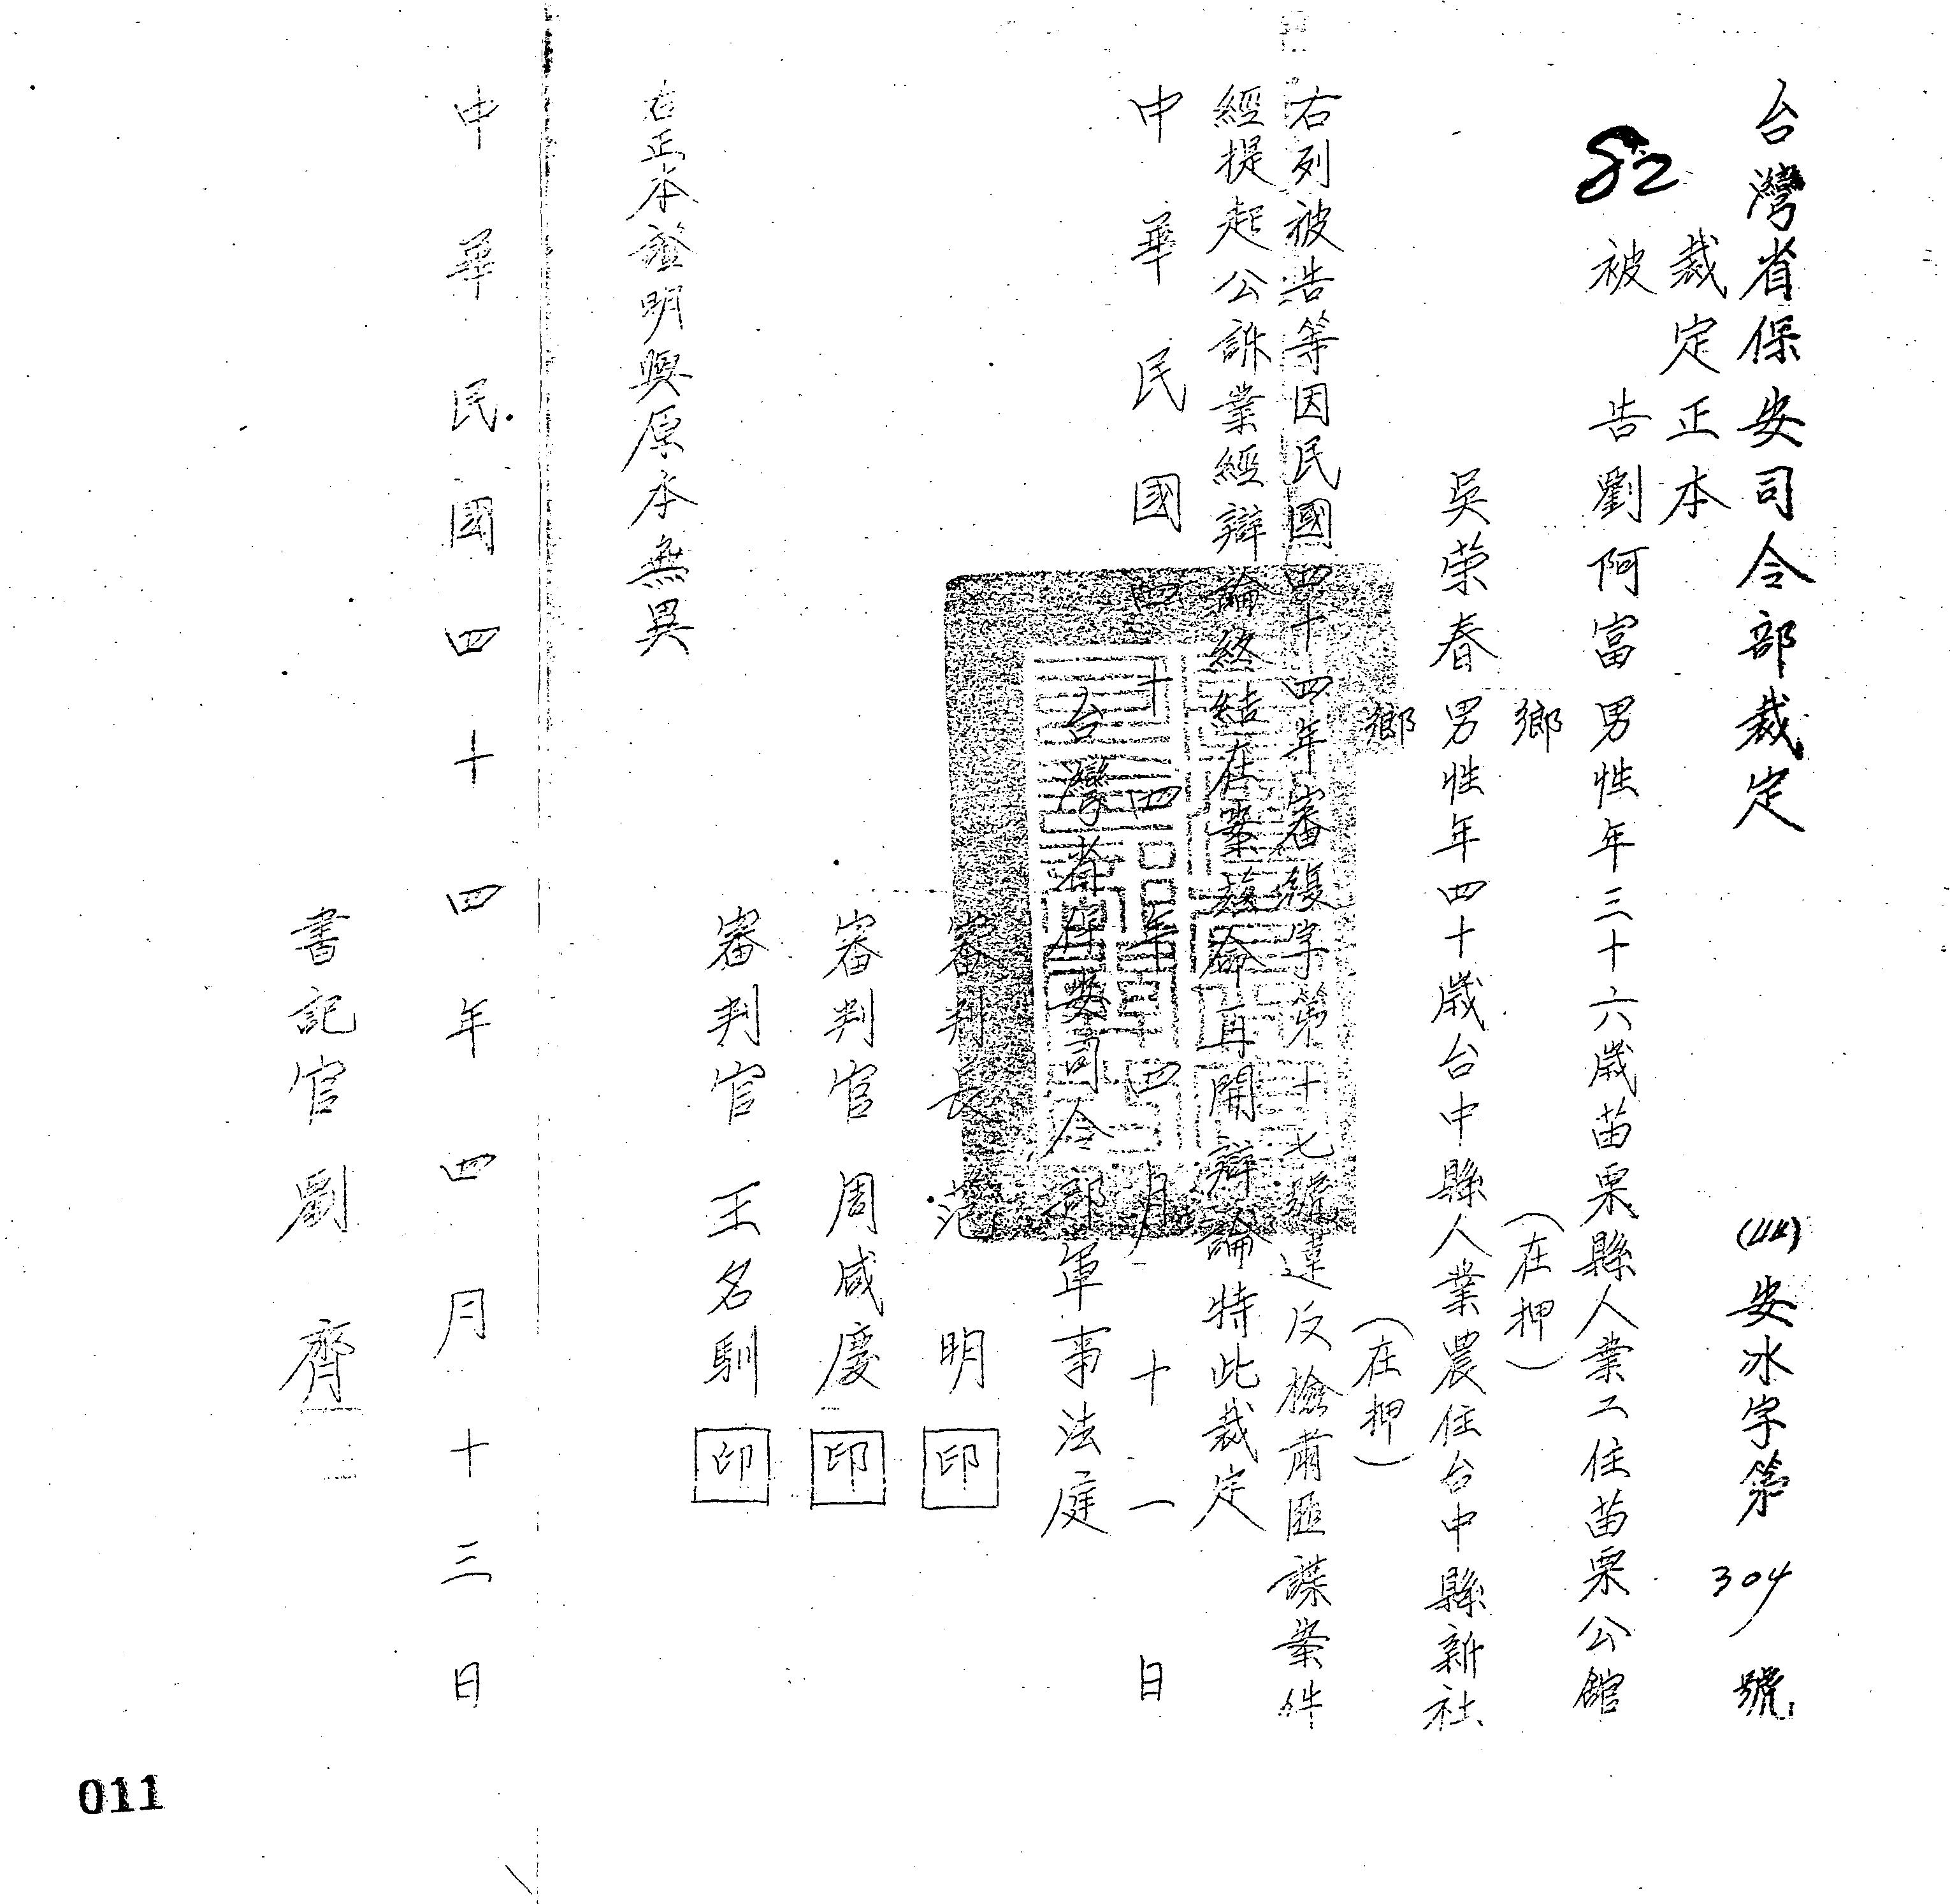 台灣省保安司令部裁定 (44)安水字第304號
裁定正本
82
被告劉阿富男性年三十六歲苗栗縣人業工住苗栗公館
鄉 (在押)
吳荣春男性年四十歲台中縣人業農住台中縣新社
鄉 (在押)
右列被告等因民國四十四年審複字第十七號違反檢肅匪諜案件
經提起公訴業經辯論終結在案茲命再開辯論特此裁定
中華民國四十四年四月十一日
台灣省保安司令部軍事法庭
審判長 范明 印
審判官 周咸慶 印
審判官 王名馴 印
右正本證明與原本無異
中華民國四十四年四月十三日
書記官 劉齊
011